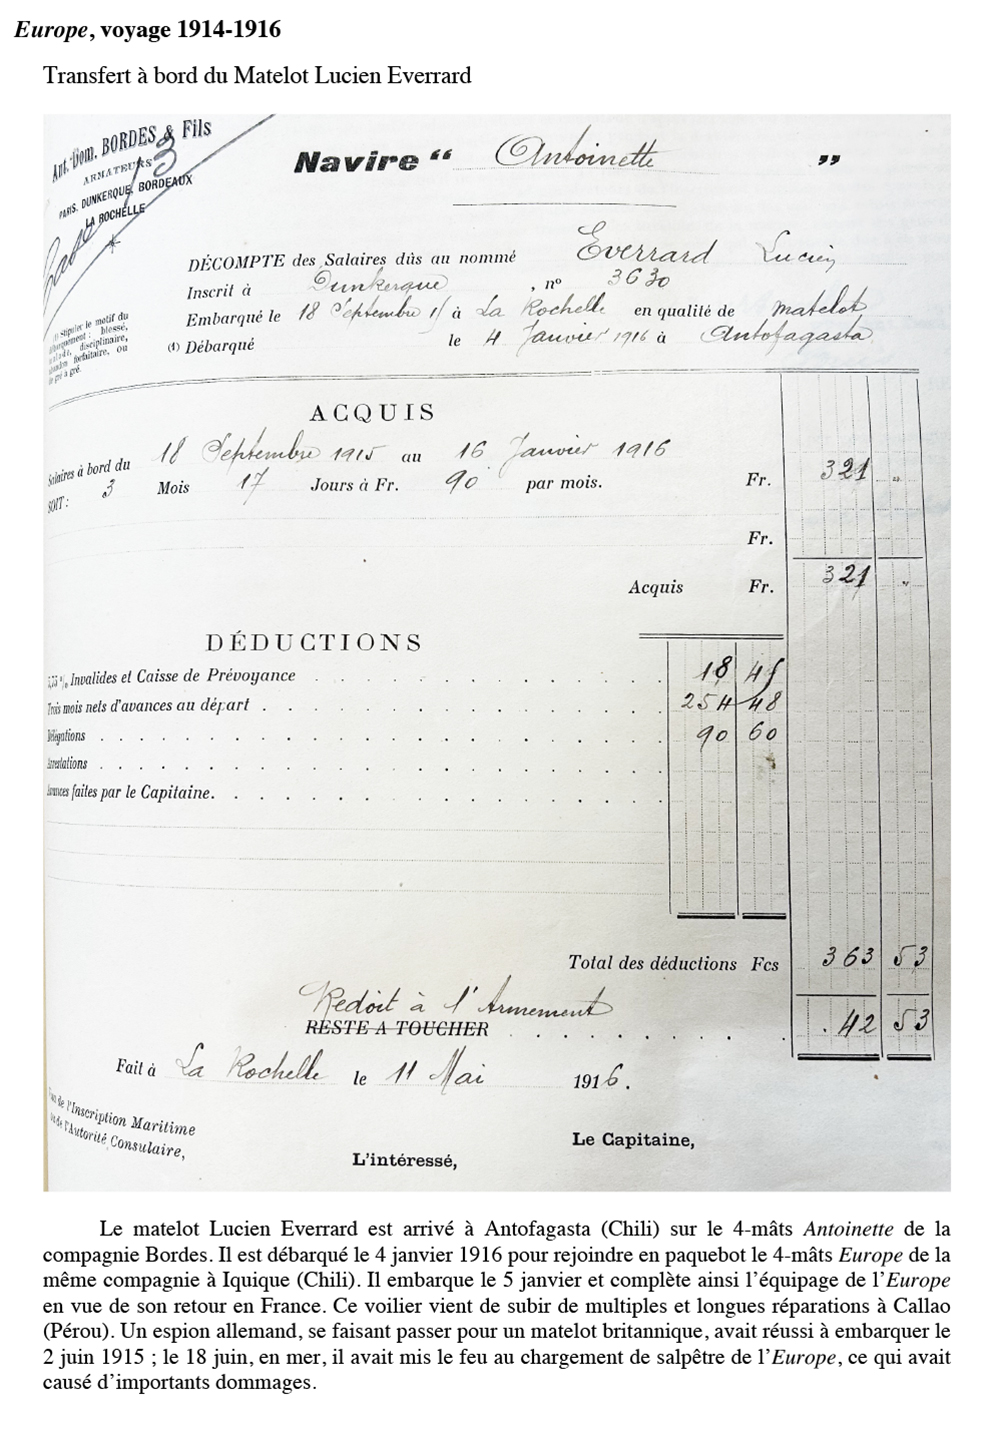 Europe, voyage 1914-1916
Transfert à bord du Matelot Lucien Everrard
Ant. Dom. BORDES & Fils
ARMATEURS
PARIS, DUNKERQUE, BORDEAUX
LA ROCHELLE
Navire “ Antoinette ”
DÉCOMPTE des Salaires dûs au nommé Everrard Lucien
Inscrit à Dunkerque, n° 3630
Embarqué le 18 Septembre 15 à La Rochelle en qualité de matelot
(1) Débarqué le 4 Janvier 1916 à Antofagasta
(1) Stipuler le motif du
débarquement : blessé,
malade, disciplinaire,
forfaitaire, ou
de gré à gré.
ACQUIS
Salaires à bord du 18 Septembre 1915 au 16 Janvier 1916
SOIT : 3 Mois 17 Jours à Fr. 90 par mois. Fr. 321 „
Fr.
Acquis Fr. 321 „
DÉDUCTIONS
5,75 % Invalides et Caisse de Prévoyance 18 45
Trois mois nets d'avances au départ 254 48
Délégations 90 60
Arrestations
Avances faites par le Capitaine.
Total des déductions Fcs 363 53
Redoit à l'Armement
RESTE A TOUCHER 42 53
Fait à La Rochelle le 11 Mai 1916.
de l'Inscription Maritime
ou de l'Autorité Consulaire,
L'intéressé,
Le Capitaine,
Le matelot Lucien Everrard est arrivé à Antofagasta (Chili) sur le 4-mâts Antoinette de la
compagnie Bordes. Il est débarqué le 4 janvier 1916 pour rejoindre en paquebot le 4-mâts Europe de la
même compagnie à Iquique (Chili). Il embarque le 5 janvier et complète ainsi l’équipage de l’Europe
en vue de son retour en France. Ce voilier vient de subir de multiples et longues réparations à Callao
(Pérou). Un espion allemand, se faisant passer pour un matelot britannique, avait réussi à embarquer le
2 juin 1915 ; le 18 juin, en mer, il avait mis le feu au chargement de salpêtre de l’Europe, ce qui avait
causé d’importants dommages.